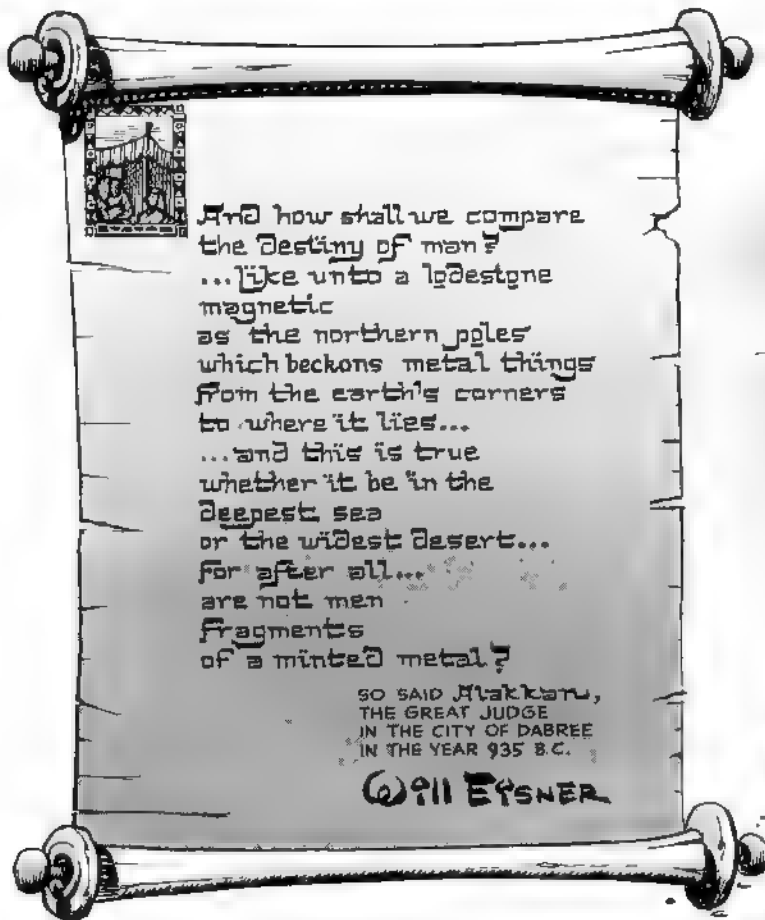 And how shall we compare
the destiny of man?
...like unto a lodestone
magnetic
as the northern poles
which beckons metal things
from the earth's corners
to where it lies...
...and this is true
whether it be in the
deepest sea
or the widest desert...
for after all...
are not men
fragments
of a minted metal?
SO SAID Alakkaru,
THE GREAT JUDGE
IN THE CITY OF DABREE
IN THE YEAR 935 B.C.
Will EISNER